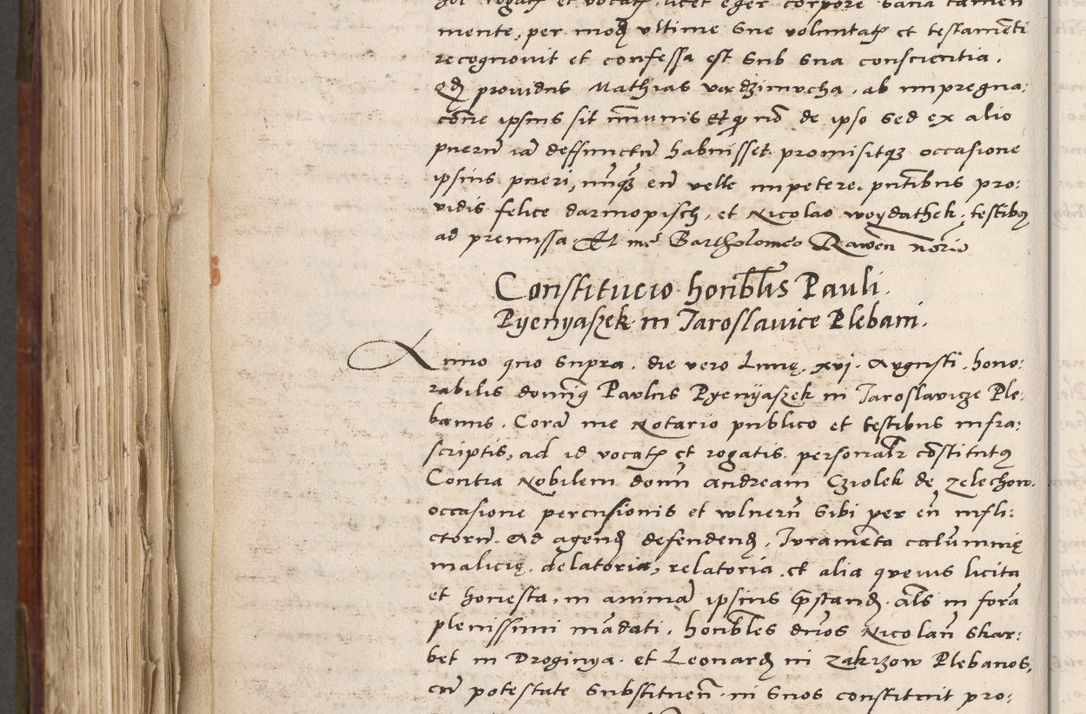 mente, per mod ultime sue voluntat et testamēti
recognovit et confessa est sub sua conscientia,
qd providus Mathias vordzimucha, ab impregna:
cōne ipsius sit īmunis et qp nō de ipso sed ex alio
puerū iā deffunctū habuisset promisitq occasione
ipsius pueri, nūq eū velle impetere, pntibus pro:
vidis felice darmopisch, et Nicolao woydathek, testibus
ad premissa Et me Bartholomeo Rawen norio
Constitucio honblis Pauli
Pyenyaszek in Jaroslauice Plebani.
Anno quo supra, die vero Lunę, xvj. Augusti, hono:
rabilis domīus Paulus Pyenÿaszek in Jaroslavicze Ple:
banus, Corā me Notario publico et testibus infra:
scriptis, ad id vocat et rogatis personalr cōstitutus
Contra Nobilem domī andream Cziolek de zelechow
occasione percusionis et vlnerū sibi per eū infli:
ctorū. Ad agend defendend, Juramēta calūmnię
malicię, delatoria, relatoria, et alia quevis licita
et honesta, in animā ipsius pstand, als in forā
plenissimi mādati, honbles dnos Nicolaū Skar:
bet in Droginya et Leonard in Zakrzow Plebanos,
cū potestate substituen̄ in suos constituit pro: